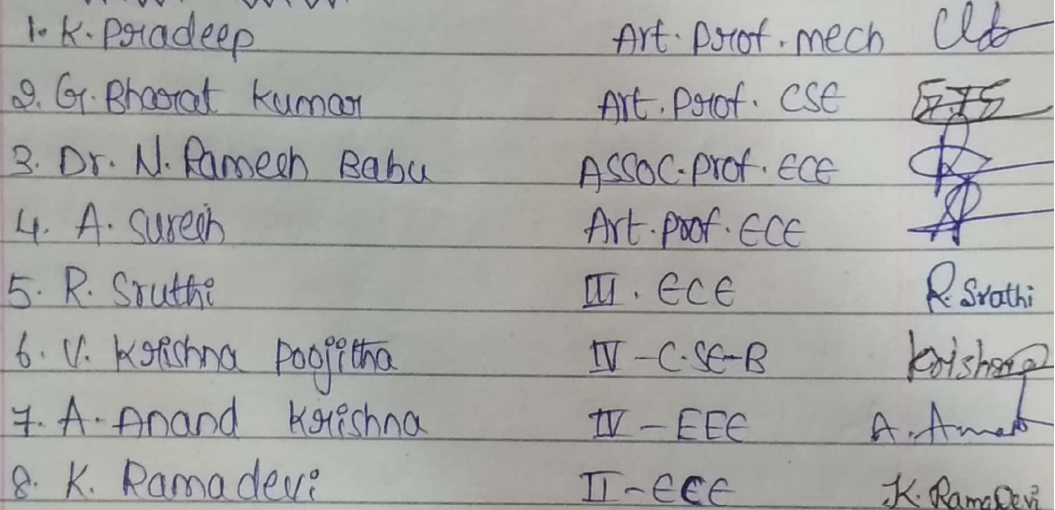 1. K. Pradeep Art. Prof. mech
2. G. Bharat Kumar Art. Prof. CSE
3. Dr. N. Ramesh Babu Assoc. Prof. ECE
4. A. Suresh Art. Prof. ECE
5. R. Sruthi III. ECE R. Sruthi
6. V. Krishna Poojitha IV - C.SE-B Krishna
7. A. Anand Krishna IV - EEE A. Anand
8. K. Ramadevi II - ECE K. RamaDevi